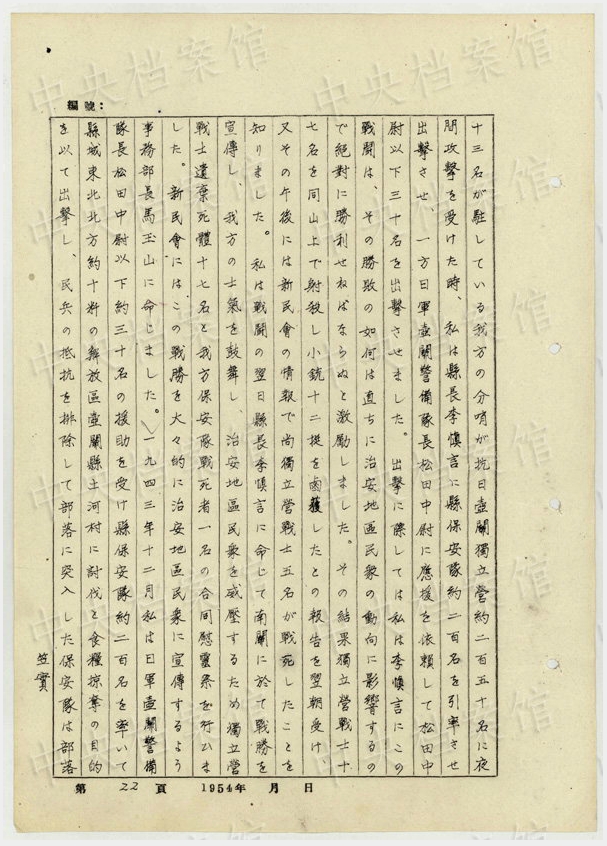 編號：
十三名が駐している我方の分哨が抗日壺關獨立營約二百五十名に夜
間攻撃を受けた時、私は縣長李慎言に縣保安隊約二百名を引率させ
出撃させ、一方日軍壺關警備隊長松田中尉に應援を依頼して松田中
尉以下三十名を出撃させました。出撃に際しては私は李慎言にこの
戰闘は、その勝敗の如何は直ちに治安地區民衆の動向に影響するの
で絶對に勝利せねばならぬと激励しました。その結果獨立營戰士十
七名を同山上で射殺し小銃十二挺を鹵獲したとの報告を翌朝受け、
又その午後には新民會の情報で尚獨立營戰士五名が戰死したことを
知りました。私は戰闘の翌日縣長李慎言に命じて南關に於て戰勝を
宣傳し、我方の士氣を鼓舞し、治安地區民衆を威壓するため獨立營
戰士遺棄死體十七名と我方保安隊戰死者一名の合同慰靈祭を行ひま
した。新民會にはこの戰勝を大々的に治安地區民衆に宣傳するよう
事務部長馬玉山に命じました。一九四三年十二月私は日軍壺關警備
隊長松田中尉以下約三十名の援助を受け縣保安隊約二百名を率いて
縣城東北北方約十粁の解放區壺關縣土河村に討伐と食糧掠奪の目的
を以て出撃し、民兵の抵抗を排除して部落に突入した保安隊は部落
笠實
第 22 頁 1954年 月 日
中央档案馆